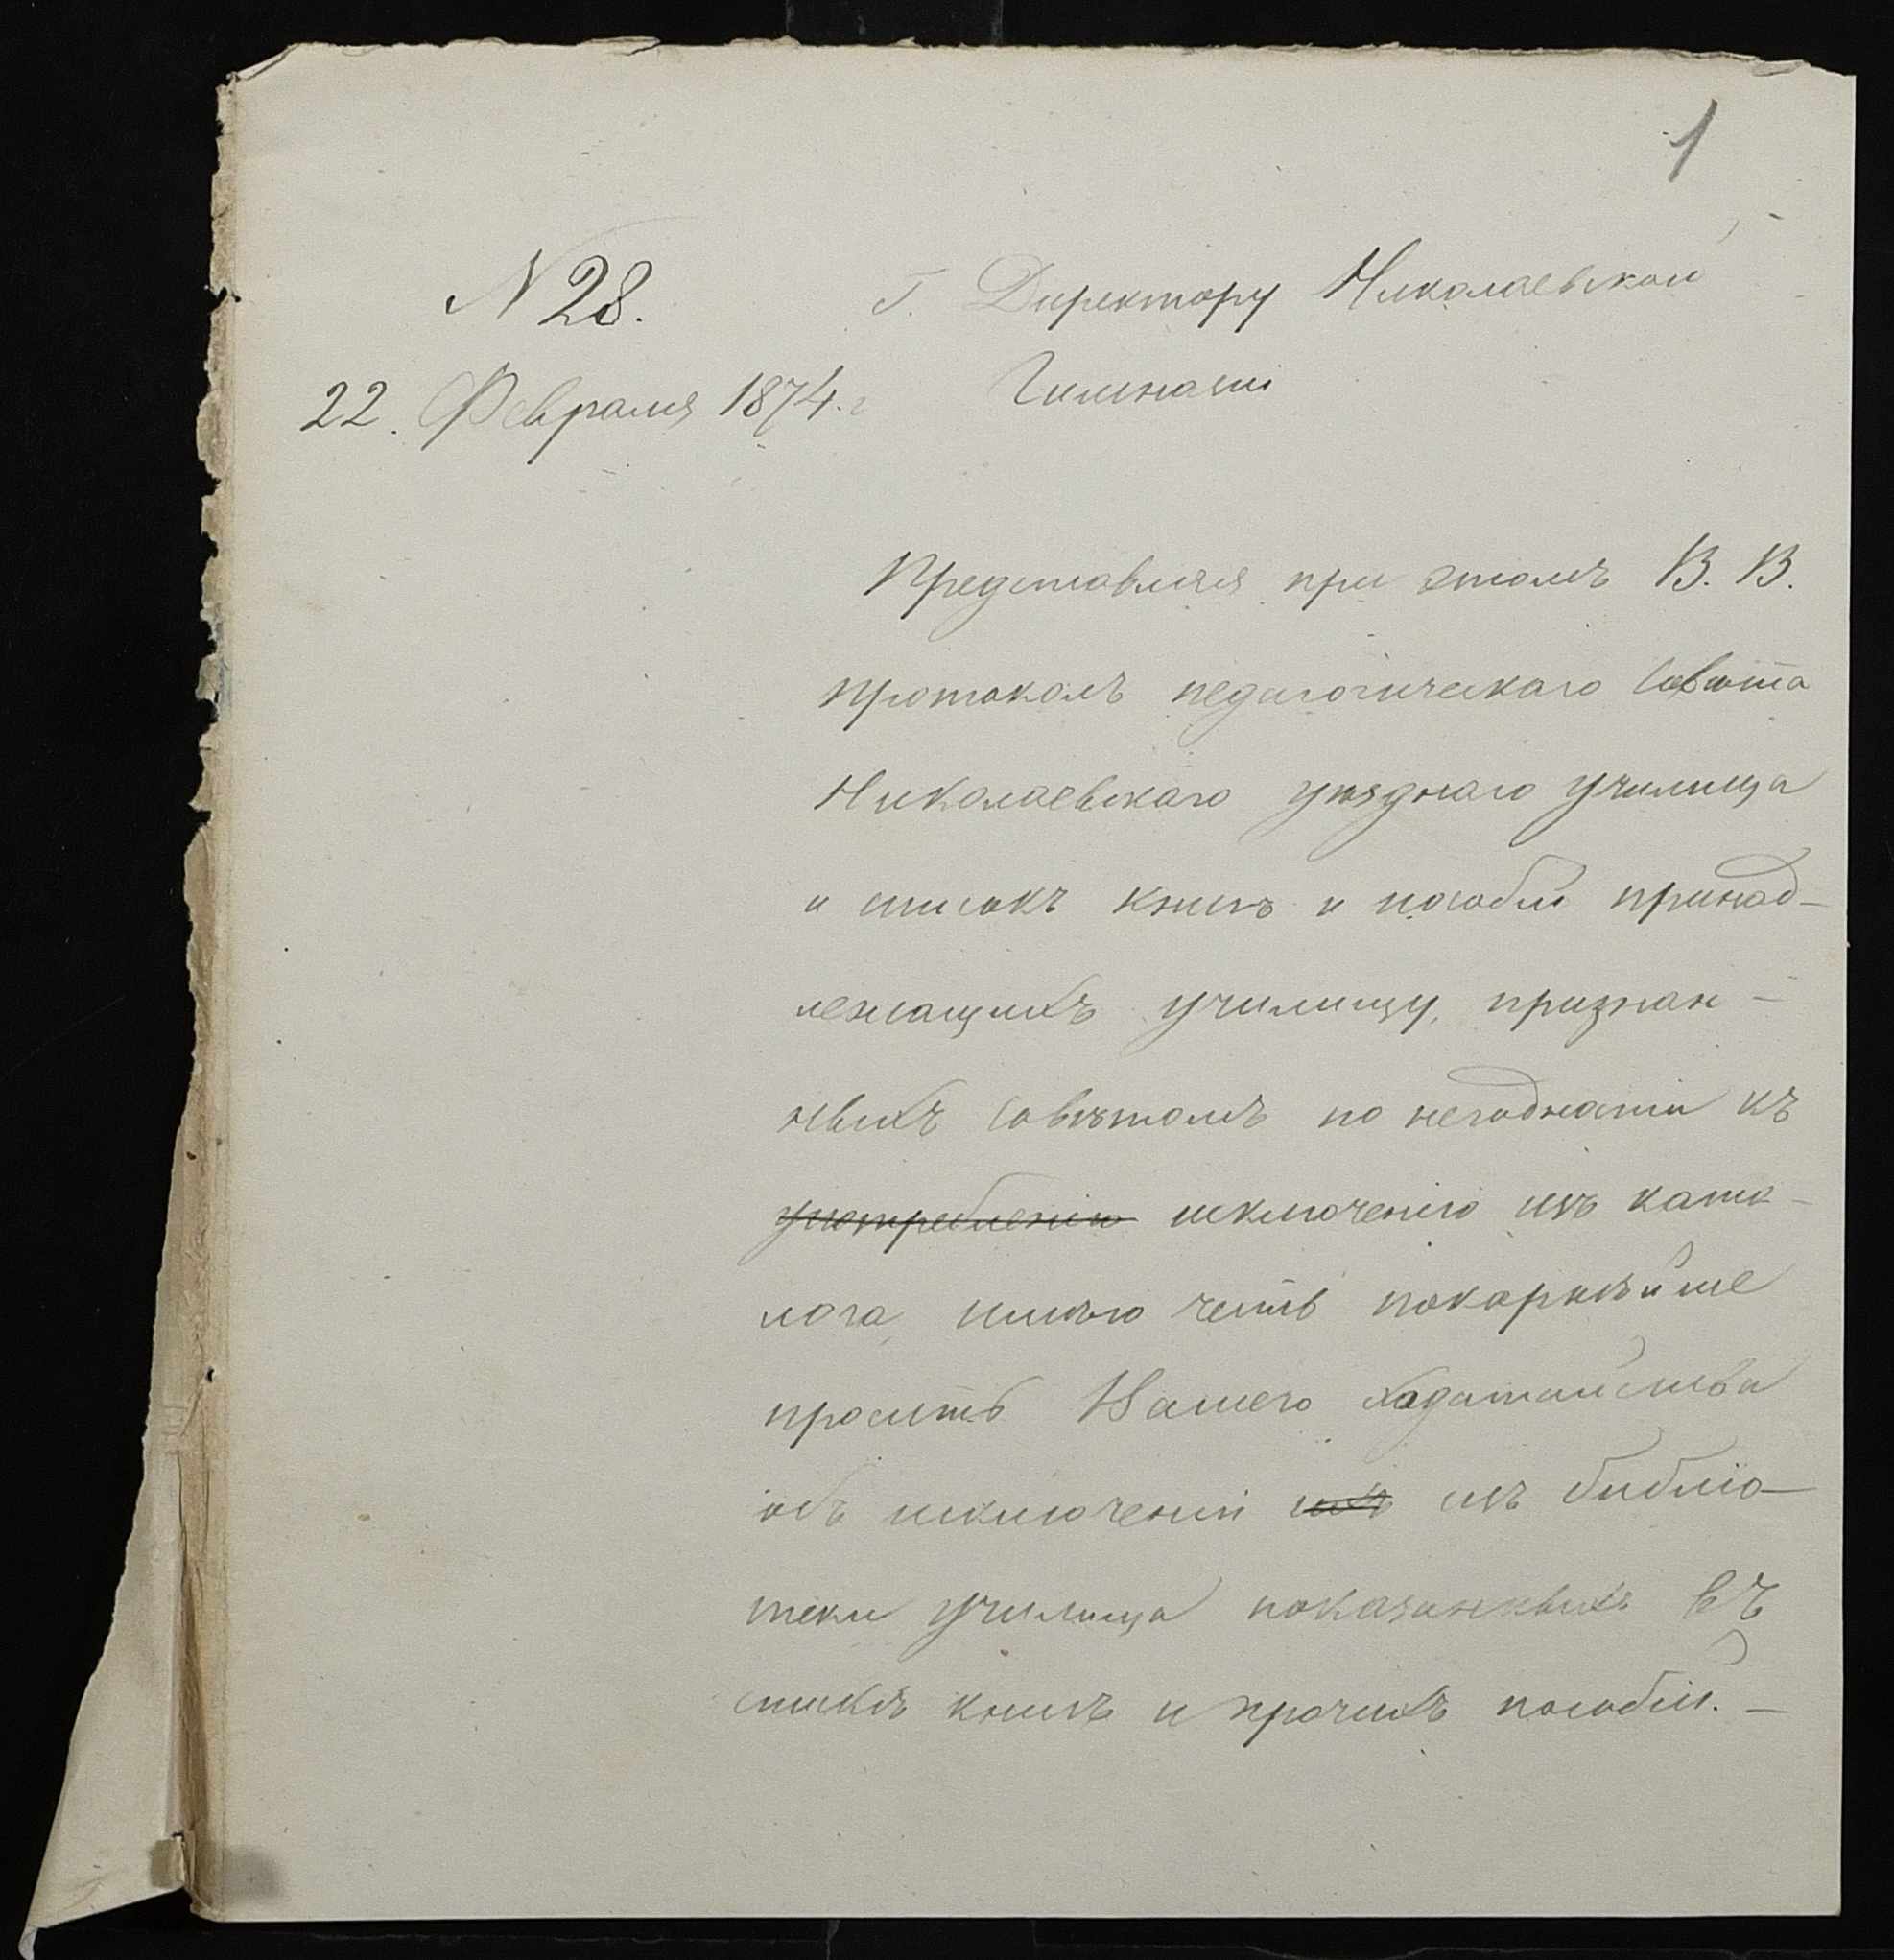 1
N 28.
22. Февраля 1874. г
Г. Директору Николаевской
Гимназіи
Представляя при этомъ В. В.
протоколъ педагогическаго Совѣта
Николаевскаго уѣзднаго училища
и списокъ книгъ и пособій принад-
лежащихъ училищу, признан-
ныхъ Совѣтомъ по негодности къ
употребленію исключенію изъ ката-
лога, имѣю честь покорнѣйше
просить Вашего ходатайства
объ исключеніи ихъ изъ библіо-
теки училища показанныхъ въ
спискѣ книгъ и прочихъ пособій. -